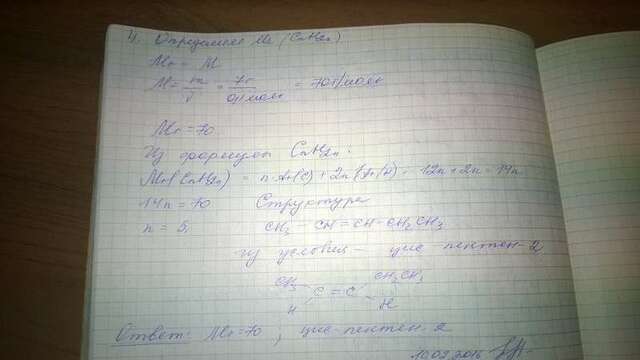 4. Определяем Mr (CnH2n)
Mr = M
M = m/ν = 7г/0,1моль = 70г/моль
Mr = 70
Из формулы CnH2n:
Mr(CnH2n) = n·Ar(C) + 2n·Ar(H) = 12n + 2n = 14n
14n = 70 Структура
n = 5. CH3 – CH = CH – CH2CH3
из условия – цис-пентен-2
CH3 CH2CH3
C = C
H H
Ответ: Mr = 70, цис-пентен-2
10.03.2016